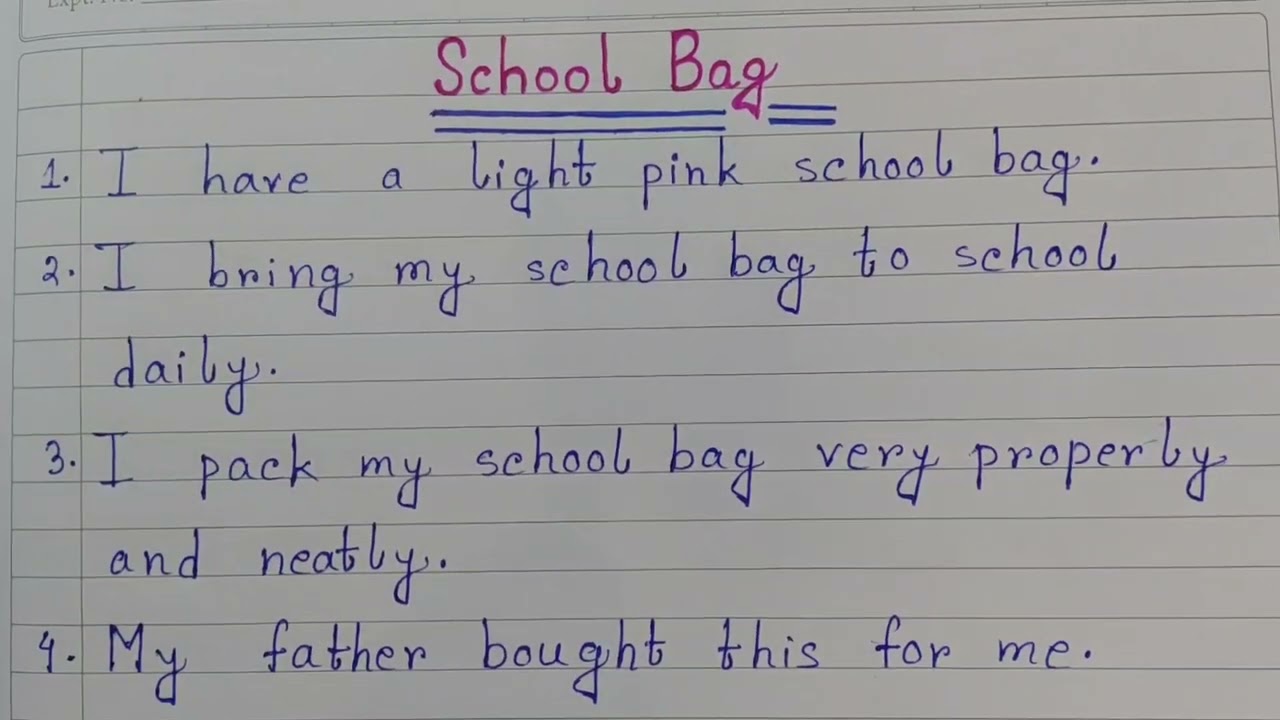 School Bag
1. I have a light pink school bag.
2. I bring my school bag to school
daily.
3. I pack my school bag very properly
and neatly.
4. My father bought this for me.